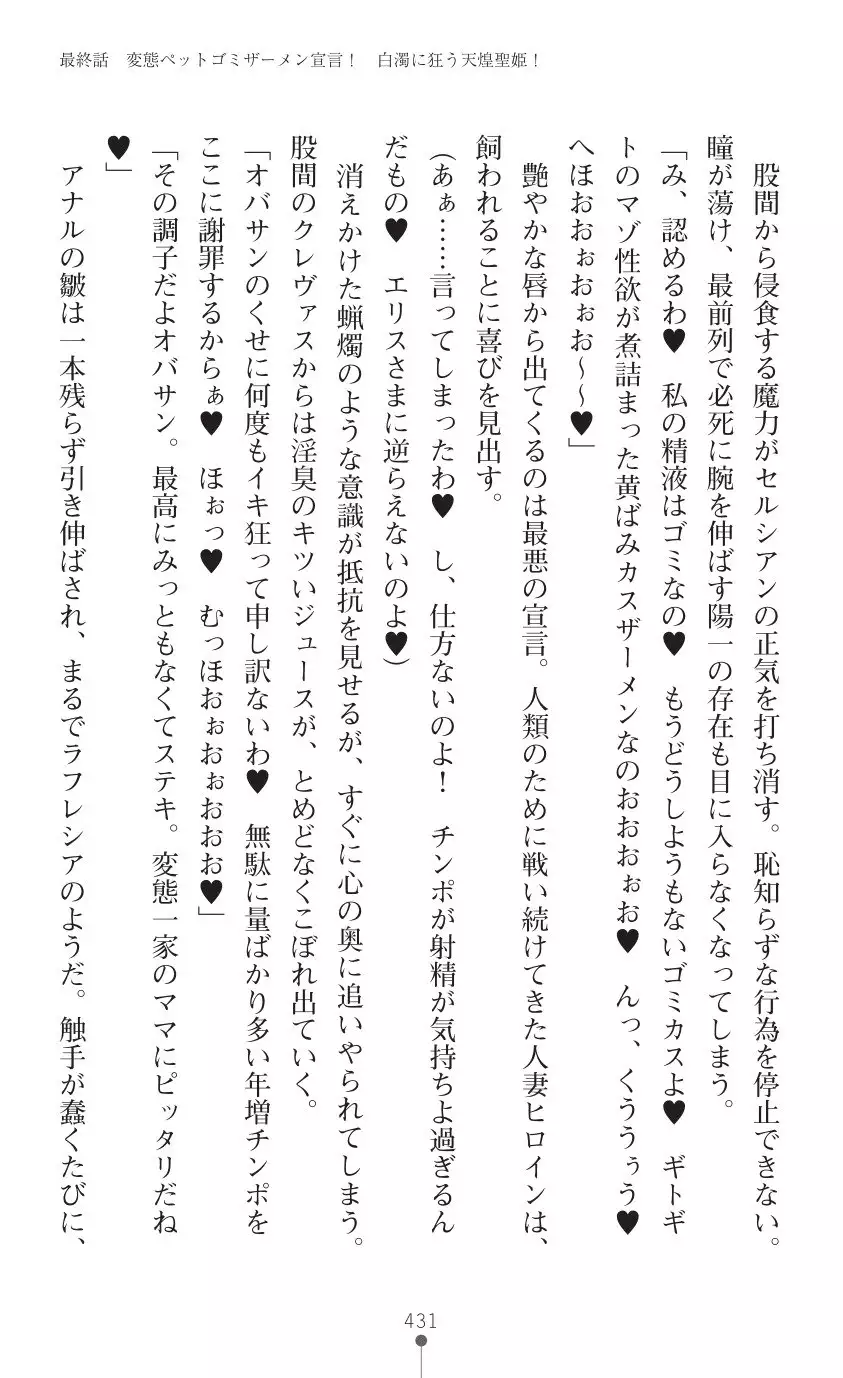 最終話　変態ペットゴミザーメン宣言！　白濁に狂う天煌聖姫！
　股間から侵食する魔力がセルシアンの正気を打ち消す。恥知らずな行為を停止できない。
瞳が蕩け、最前列で必死に腕を伸ばす陽一の存在も目に入らなくなってしまう。
「み、認めるわ♥　私の精液はゴミなの♥　もうどうしようもないゴミカスよ♥　ギトギ
トのマゾ性欲が煮詰まった黄ばみカスザーメンなのおおおぉお♥　んっ、くううぅう♥
へほおおぉおぉお～～♥」
　艶やかな唇から出てくるのは最悪の宣言。人類のために戦い続けてきた人妻ヒロインは、
飼われることに喜びを見出す。
（あぁ……言ってしまったわ♥　し、仕方ないのよ！　チンポが射精が気持ちよ過ぎるん
だもの♥　エリスさまに逆らえないのよ♥）
　消えかけた蝋燭のような意識が抵抗を見せるが、すぐに心の奥に追いやられてしまう。
股間のクレヴァスからは淫臭のキツいジュースが、とめどなくこぼれ出ていく。
「オバサンのくせに何度もイキ狂って申し訳ないわ♥　無駄に量ばかり多い年増チンポを
ここに謝罪するからぁ♥　ほぉっ♥　むっほおぉおぉおおお♥」
「その調子だよオバサン。最高にみっともなくてステキ。変態一家のママにピッタリだね
♥」
　アナルの皺は一本残らず引き伸ばされ、まるでラフレシアのようだ。触手が蠢くたびに、
431